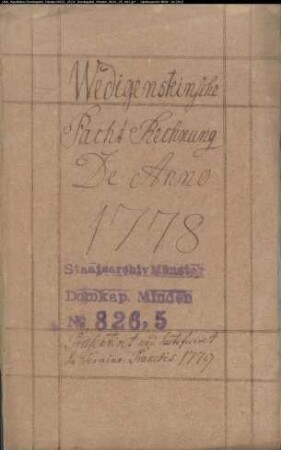 Wedigensteinsche
Pacht Rechnung
De Anno
1778
Staatsarchiv Münster
Domkap. Minden
№ 826,5
1779